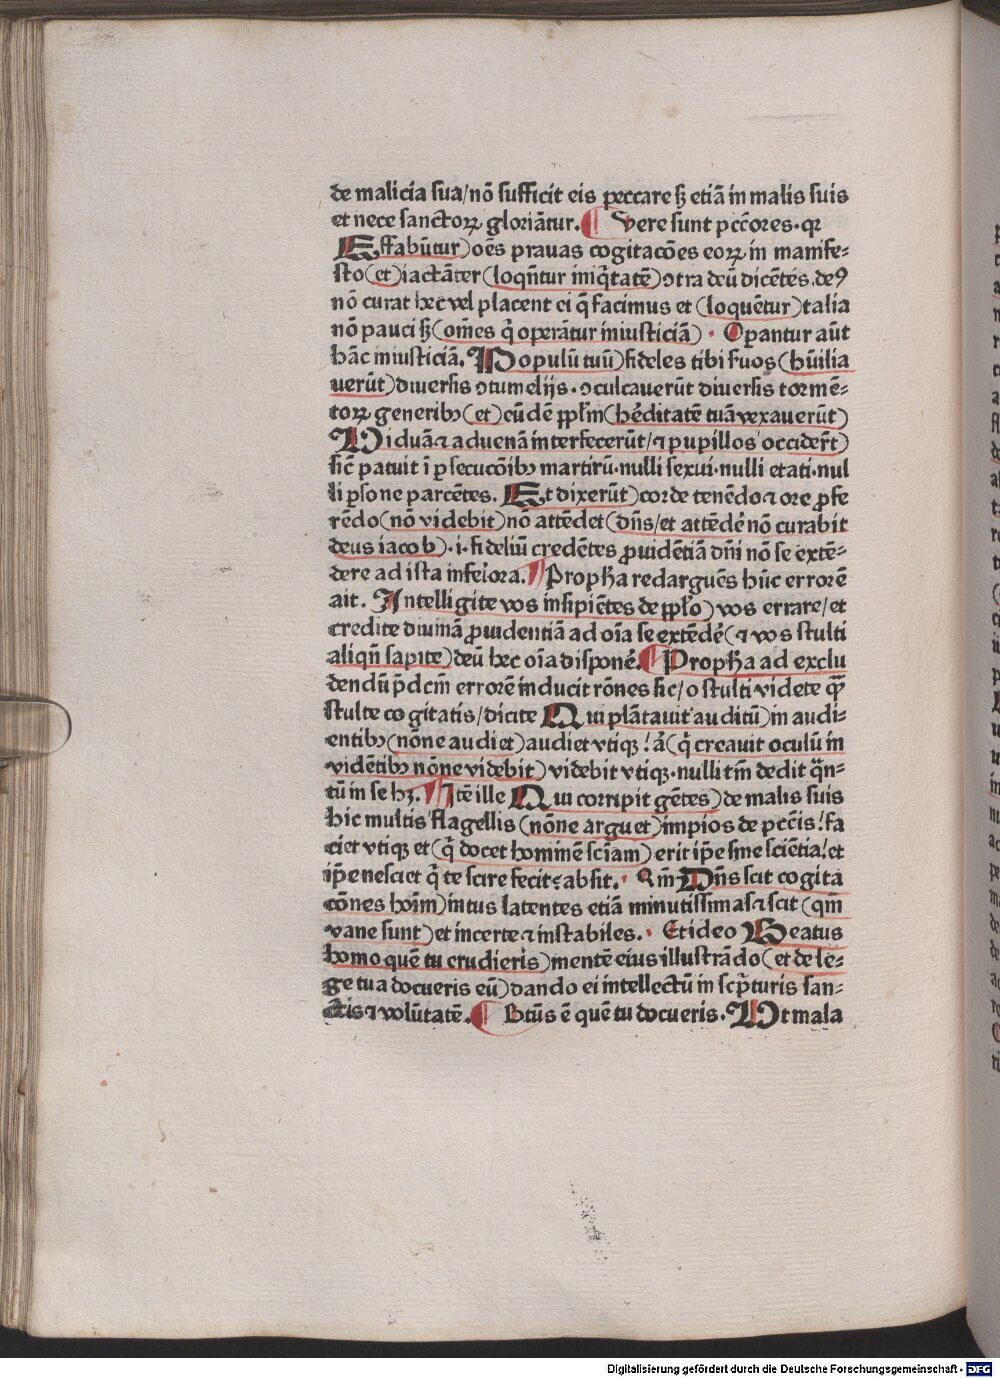 de malicia sua/nō sufficit eis peccare sȝ etiā in malis suis
et nece sanctoꝝ gloriāt̄ur. ¶ Vere sunt pctōres. qꝛ
Effabūtur) oēs prauas cogitacōes eoꝝ in manife⸗
sto (et) iactāter (loqn̄tur iniq̇tatē) ↄtra deū dicētes. deꝰ
nō curat hec vel placent ei q̄ facimus et (loquētur) talia
nō pauci sȝ (om̄es q̇ operātur iniusticiā) · Opantur aūt
hāc iniusticiā. Populū tuū) fideles tibi suos (hūilia
uerūt) diuersis ↄtumelijs. ↄculcauerūt diuersis tormē⸗
toꝝ generibꝫ (et) cūdē ꝑpl̄m (hēditatē tuā vexauerūt)
Viduā ⁊ aduenā interfecerūt/ ⁊ pupillos occider̄t)
sic̄ patuit ī ꝑsecucōibꝫ martirū. nulli sexui. nulli etati. nul
li ꝑsone parcētes. Et dixerūt) corde tenēdo ⁊ ore ꝓfe
rēdo (nō videbit) nō attēdet (dn̄s/ et attēdē nō curabit
deus iacob). i. fideliū credētes ꝓuidētiā dn̄i nō se extē⸗
dere ad ista inferiora. ¶ Propħa redarguēs hūc errorē
ait. Intelligite vos insipiētes de ꝑpl̄o) vos errare/ et
credite diuinā ꝓuidentiā ad oīa se extēdē (⁊ vos stulti
aliqn̄ sapite) deū hec oīa disponē. ¶ Propħa ad exclu
dendū p̄dcm̄ errorē inducit rōnes sic/ o stulti videte qȝ̄
stulte cogitatis/ dicite Qui plātauit auditū) in audi⸗
entibꝫ (nōne audiet) audiet vtiqꝫ! ā (q̇ creauit oculū in
vidētibꝫ nōne videbit) videbit vtiqꝫ. nulli tm̄ dedit q̄n⸗
tū in se hȝ. ¶ Itē ille Qui corripit gētes) de malis suis
hic multis flagellis (nōne arguet) impios de pctīs! fa
ciet vtiqꝫ et (q̇ docet hominē sc̄iam) erit ip̄e sine scientia! et
ip̄e nesciet q̇ te scire fecit: absit. · Qm̄ Dn̄s scit cogita
cōnes hoīm) intus latentes etiā minutissimas ⁊ scit (qm̄
vane sunt) et incerte ⁊ instabiles. · Et ideo Beatus
homo quē tu erudieris) mentē eius illustrādo (et de le⸗
ge tua docueris eū) dando ei intellectū in scp̄turis san⸗
ctis ⁊ volūtatē. ¶ Btūs ē quē tu docueris. Vt mala
Digitalisierung gefördert durch die Deutsche Forschungsgemeinschaft - DFG